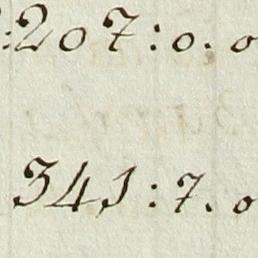 :207:0.0
341:7.0